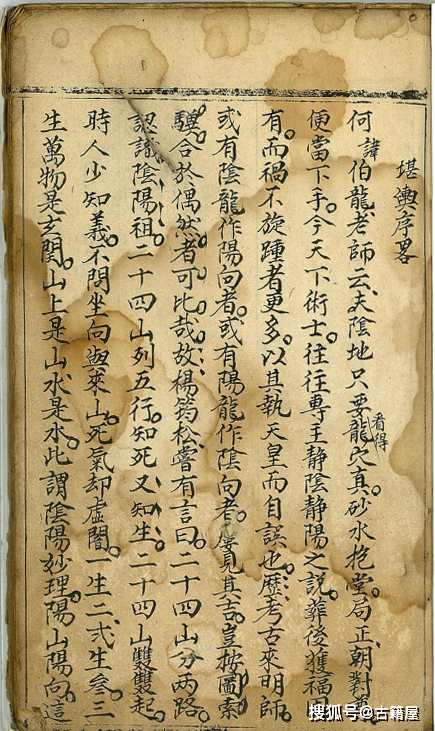 堪輿序畧
何諱伯龍老師云夫陰地只要看得龍穴真砂水抱堂局正朝對
便當下手今天下術士往往專主静陰静陽之說葬後獲福
有而禍不旋踵者更多以其執天皇而自誤也歷考古來明師
或有陰龍作陽向者或有陽龍作陰向者屡見其吉豈按圖索
驥合於偶然者可比哉故楊筠松嘗有言曰二十四山分两路
認識陰陽祖二十四山列五行知死又知生二十四山雙雙起
時人少知義不問坐向與來山死氣却虛閒一生二弍生叁三
生萬物是玄関山上是山水是水此謂陰陽妙理陽山陽向這
搜狐号@古籍屋